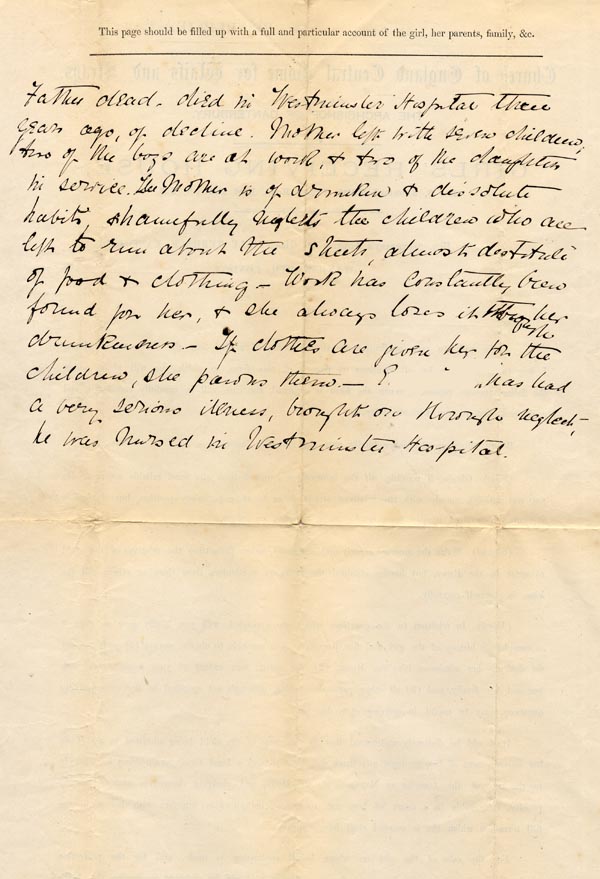 This page should be filled up with a full and particular account of the girl, her parents, family, &c.
Father dead - died in Westminster Hospital three
years ago, of decline. Mother left with seven children,
two of the boys are at work, & two of the daughters
in service. The Mother is of drunken & dissolute
habits, shamefully neglects the children who are
left to run about the streets, almost destitute
of food & clothing - Work has constantly been
found for her, & she always loses it through her
drunkenness. - If clothes are given her for the
children, she pawns them. - E. " " has had
a very serious illness, brought on through neglect,
he was nursed in Westminster Hospital.